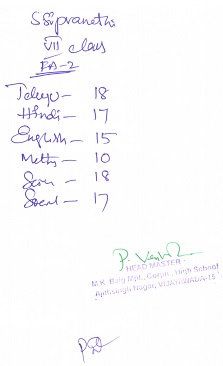 S Sripranathi
VII class
FA-2
Telugu - 18
Hindi - 17
English - 15
Meths - 10
Scien - 18
Social - 17
HEAD MASTER
M.K. Baig Mpl. Corpn. High School
Ajithsingh Nagar, VIJAYAWADA-15